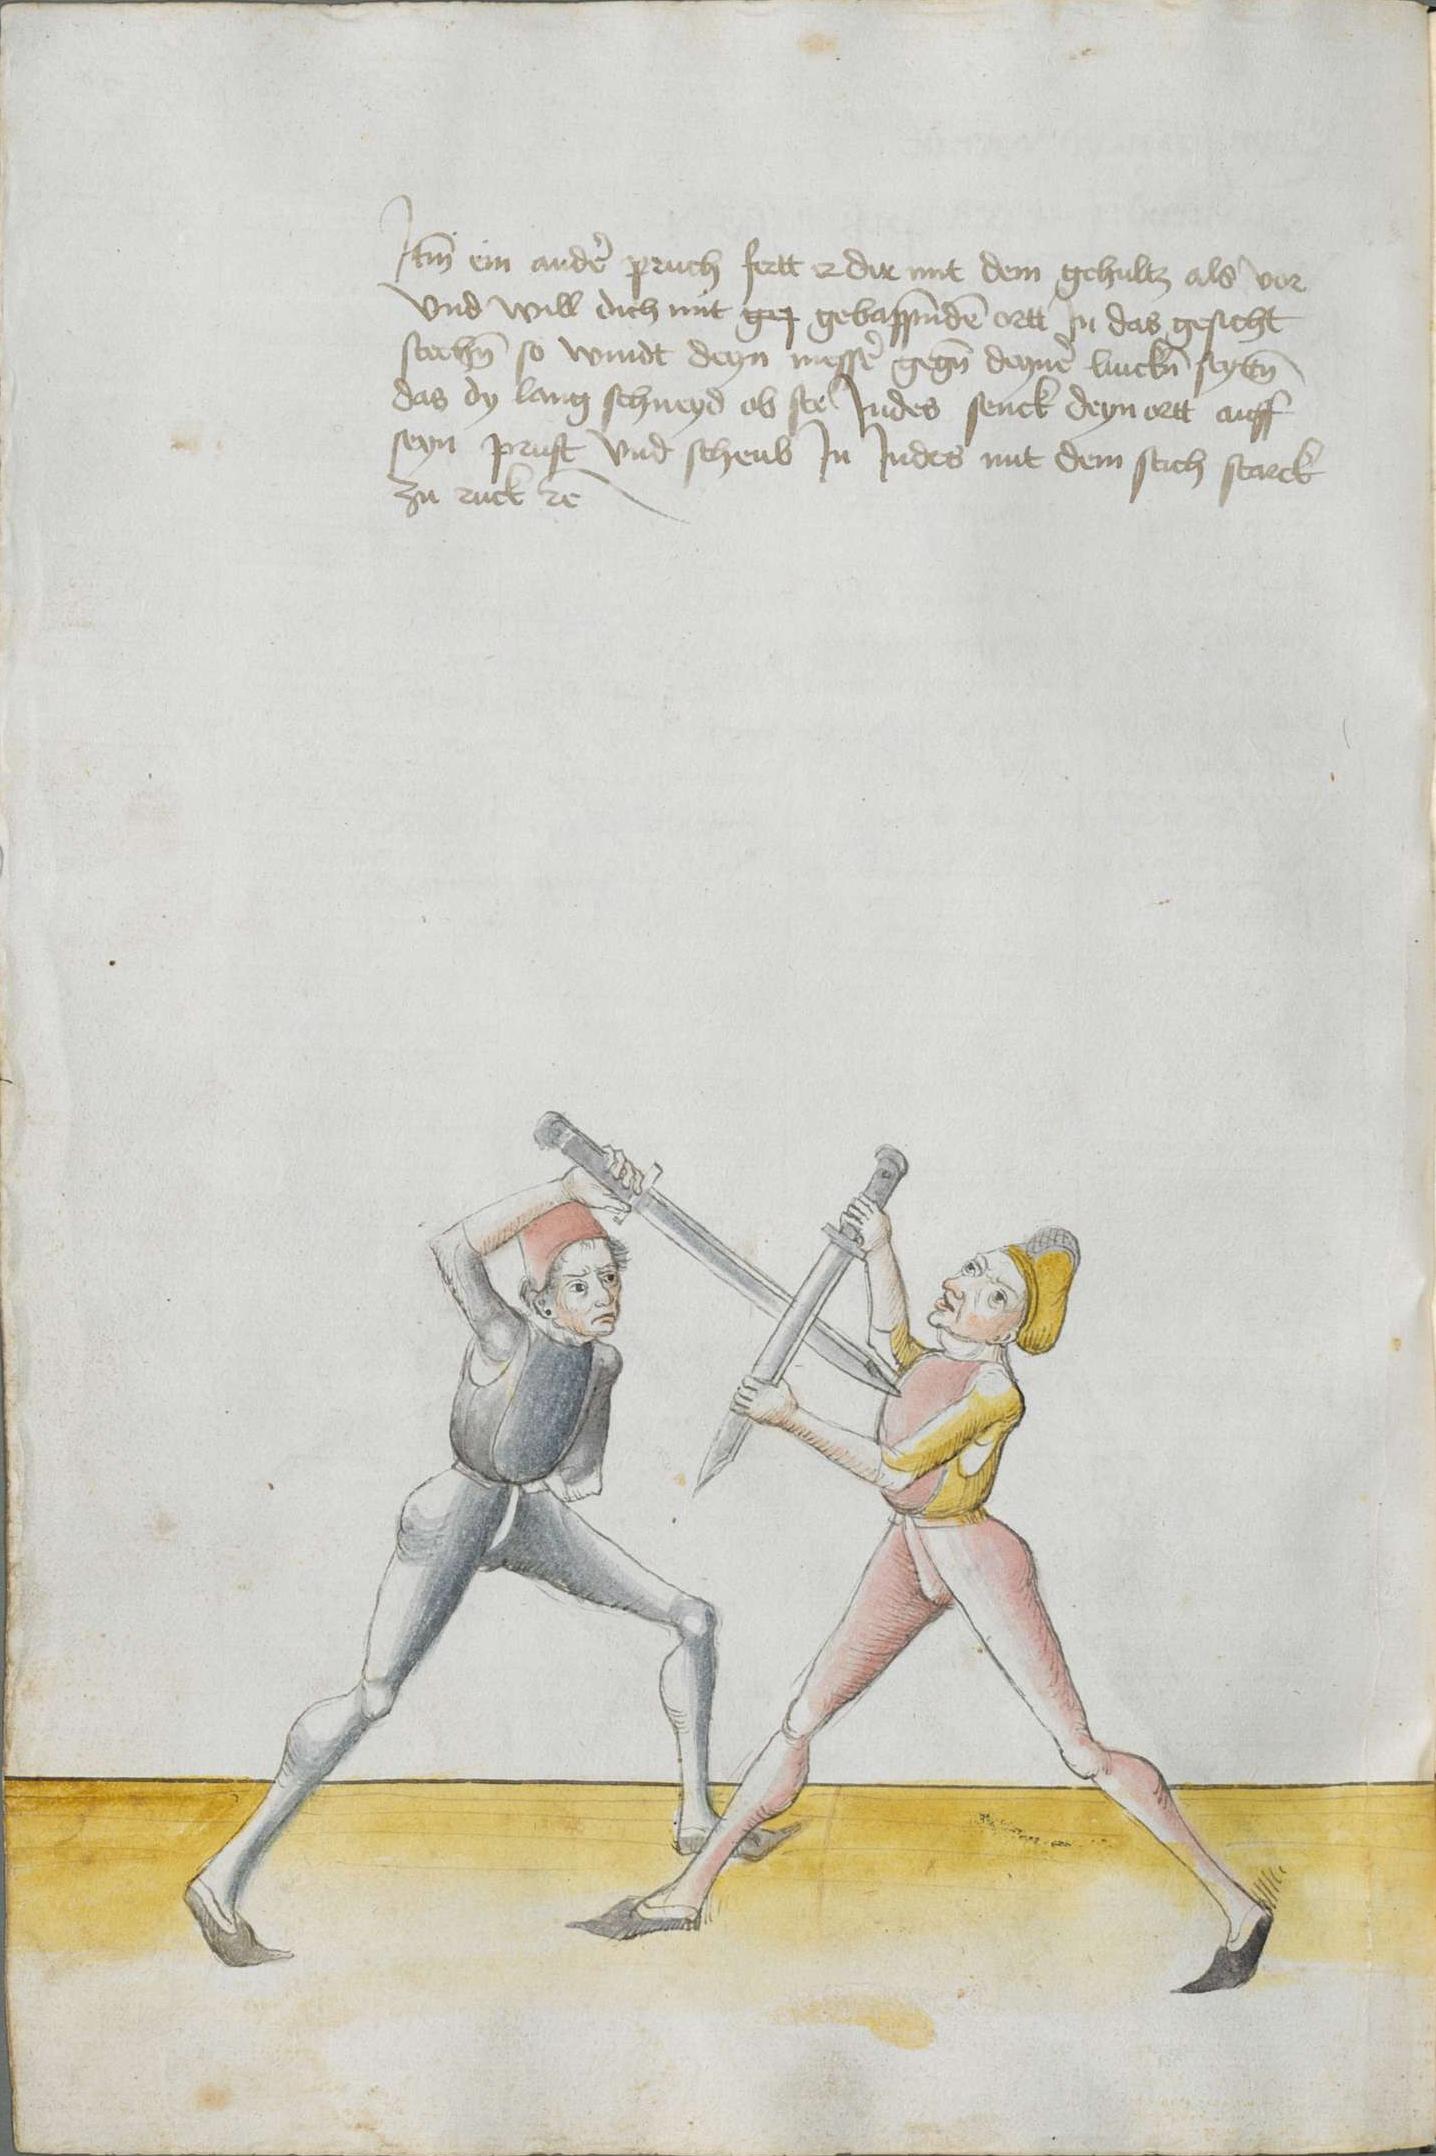 Itm̄ ein ander̃ pruch fertt er dir mit dem gehultz als vor
vnd will dich mit geꝫ gebappn̄dē ortt In das gesicht
stechn̄ so windt deyn messer̃ gegn̄ deyner̃ linckn̄ seytn̄
das dy lang schneyd ob ste Indes senck deyn ortt auff
seyn prust vnd scheub In Indes mit dem stich starck
zu ruck ꝛc